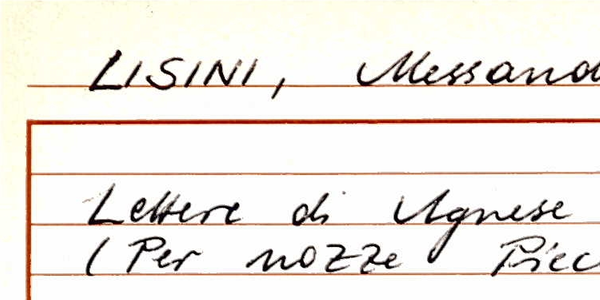 LISINI, Alessand
Lettere di Agnese
(Per nozze Picc